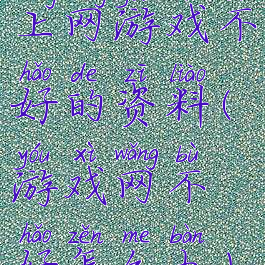 上网游戏不
hǎo de zī liào
好的资料(
yóu xì wǎng bù
游戏网不
hǎo zěn me bàn
好怎么办)